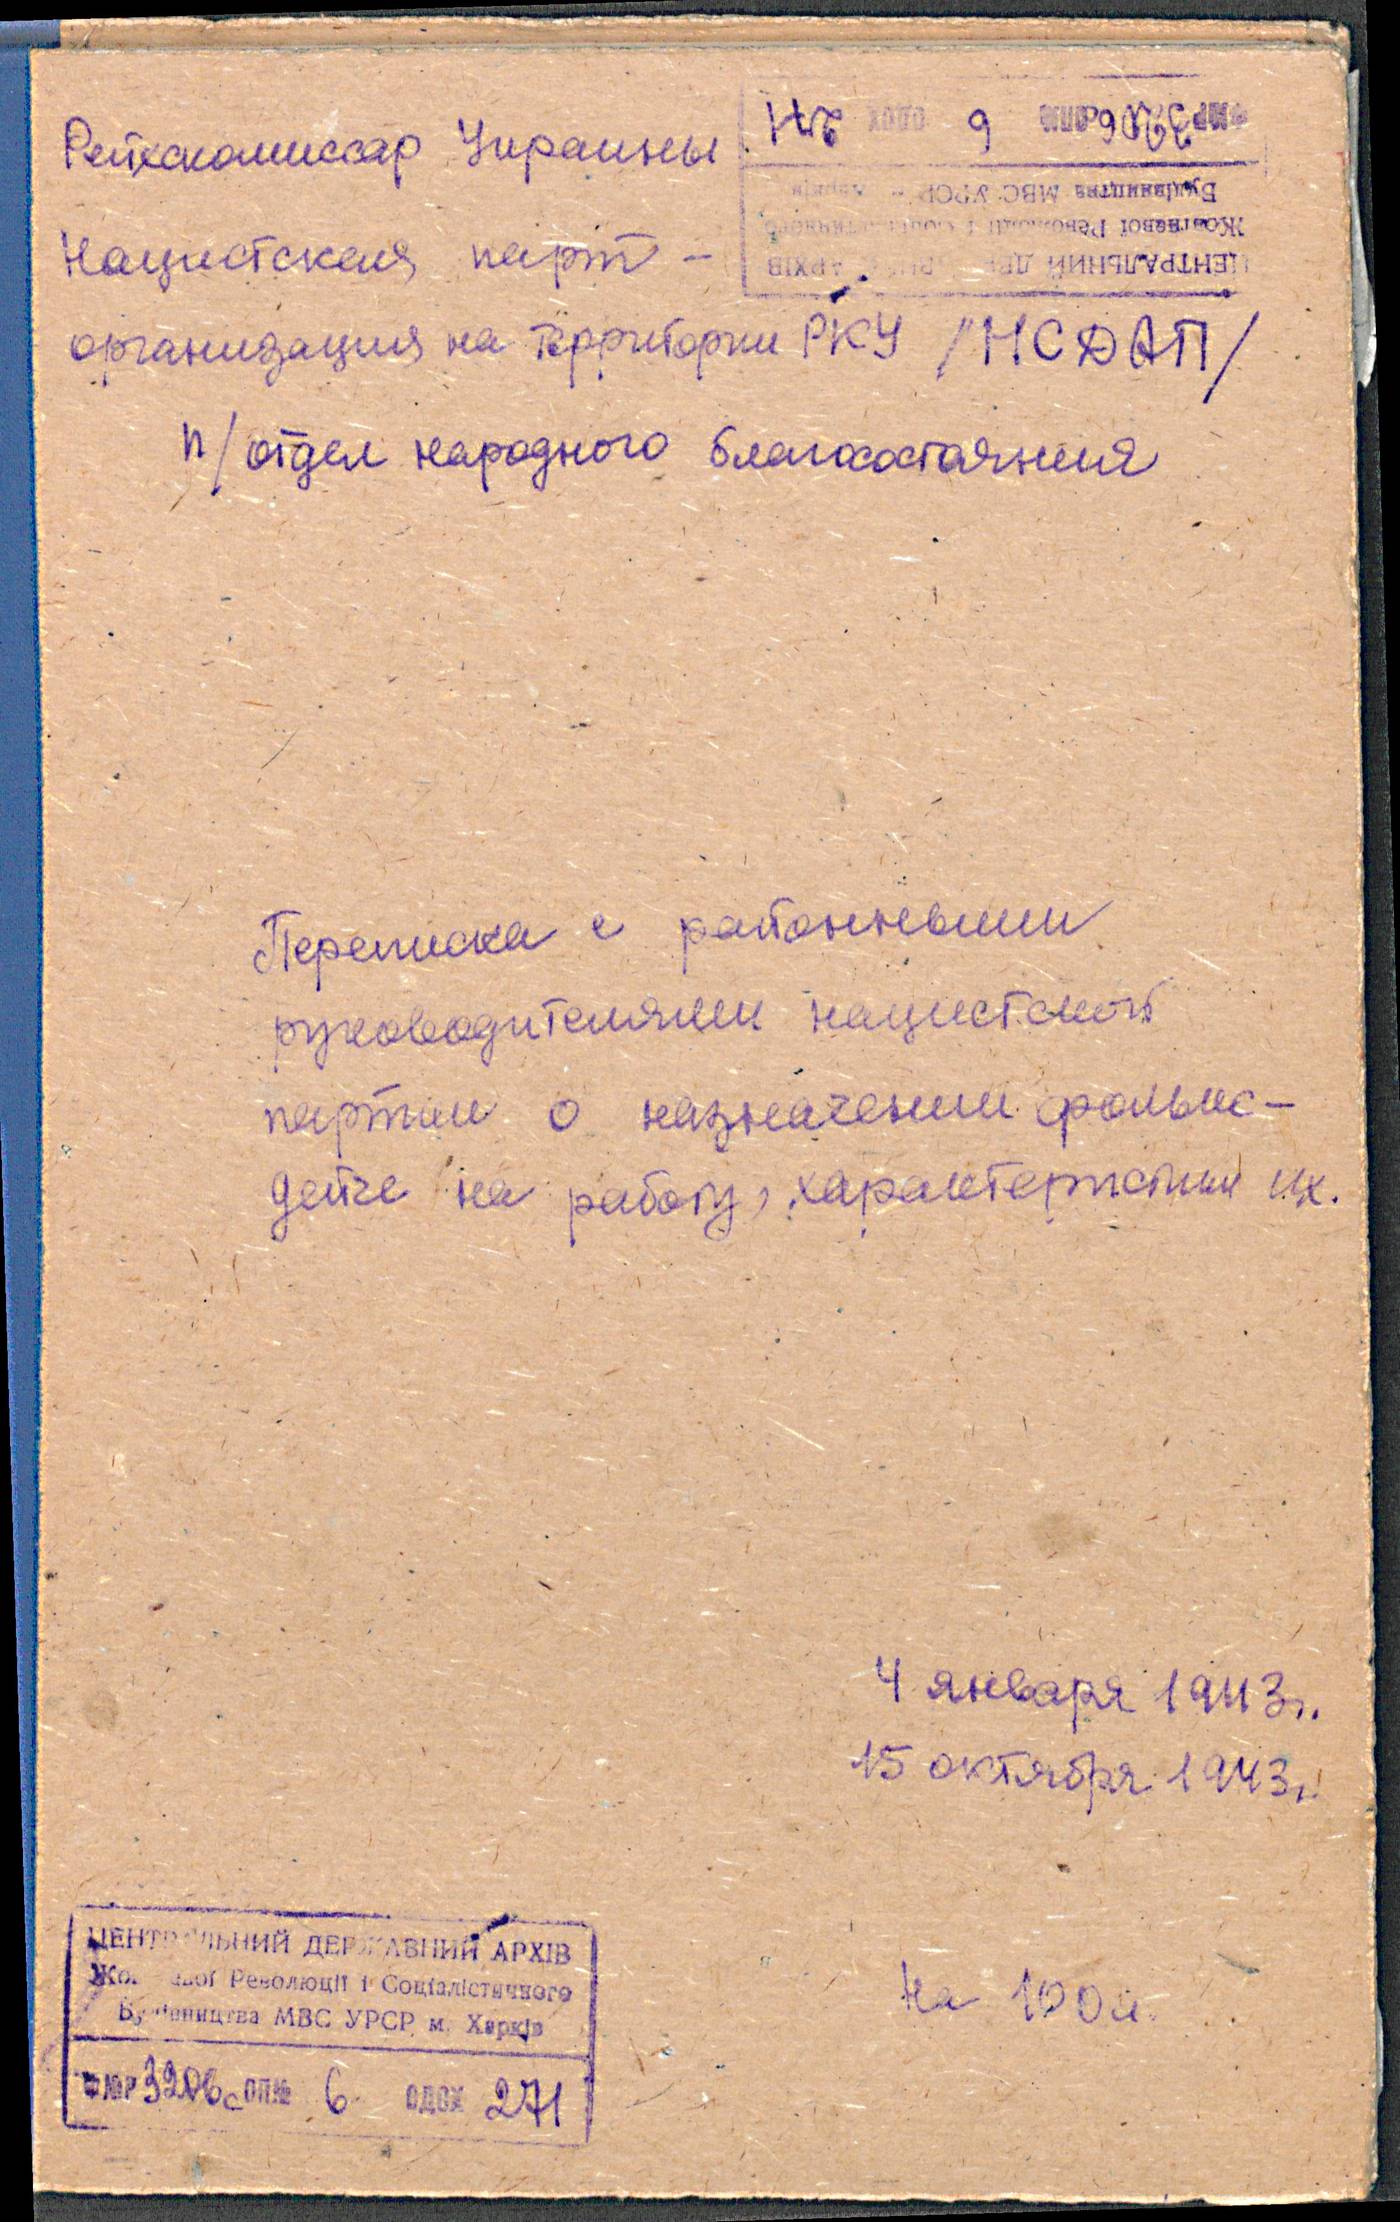 Рейхскомиссар Украины
Нацистская парт-
организация на территории РКУ /НСДАП/
п/отдел народного благосостояния
ЦЕНТРАЛЬНИЙ ДЕРЖАВНИЙ АРХІВ
Жовтневої Революції і Соціалістичного
Будівництва МВС УРСР
Ф№Р 3206с ОП№ 6 ОДОХ 271
Переписка с районными
руководителями нацистской
партии о назначении фолькс-
дейче на работу, характеристики их.
4 января 1943г.
15 октября 1943г.
На 100л.
ЦЕНТРАЛЬНИЙ ДЕРЖАВНИЙ АРХІВ
Жовтневої Революції і Соціалістичного
Будівництва МВС УРСР м. Харків
Ф№Р 3206с ОП№ 6 ОДОХ 271